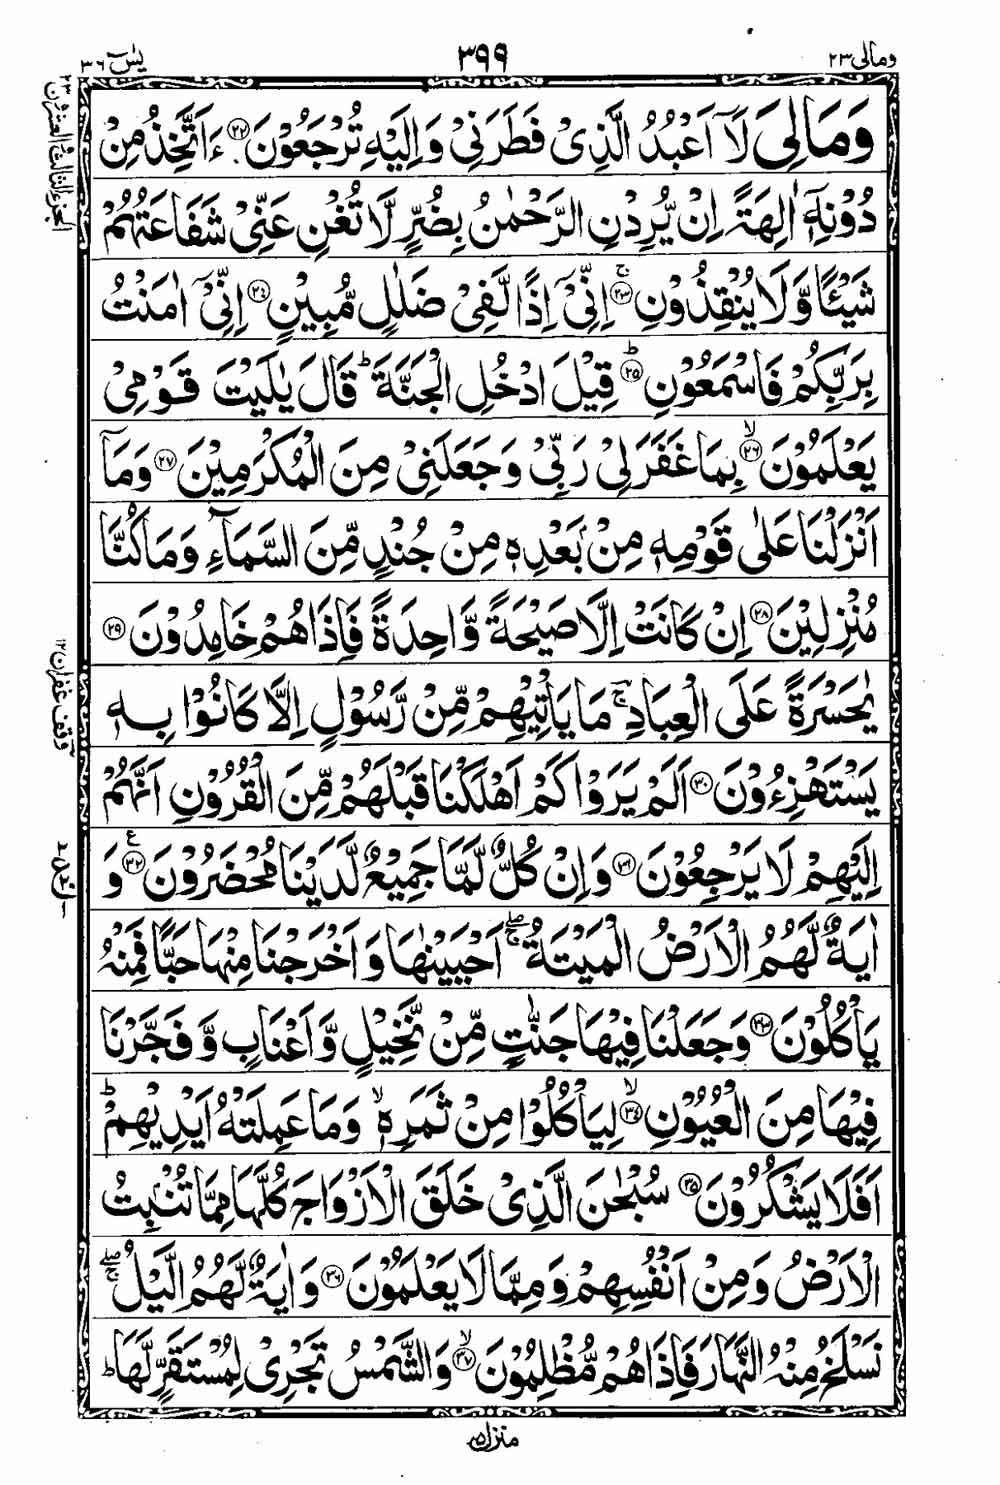 ومالی ٢٣
٣٩٩
يٰسٓ ٣٦
وَمَالِيَ لَآ اَعْبُدُ الَّذِىْ فَطَرَنِىْ وَاِلَيْهِ تُرْجَعُوْنَ ﴿٢٢﴾ ءَاَتَّخِذُ مِنْ
دُوْنِهٖٓ اٰلِهَةً اِنْ يُّرِدْنِ الرَّحْمٰنُ بِضُرٍّ لَّا تُغْنِ عَنِّىْ شَفَاعَتُهُمْ
شَيْـًٔا وَّلَا يُنْقِذُوْنِ ۚ﴿٢٣﴾ اِنِّىْٓ اِذًا لَّفِىْ ضَلٰلٍ مُّبِيْنٍ ﴿٢٤﴾ اِنِّىْٓ اٰمَنْتُ
بِرَبِّكُمْ فَاسْمَعُوْنِ ؕ﴿٢٥﴾ قِيْلَ ادْخُلِ الْجَنَّةَ ؕ قَالَ يٰلَيْتَ قَوْمِىْ
يَعْلَمُوْنَ ۙ﴿٢٦﴾ بِمَا غَفَرَلِىْ رَبِّىْ وَجَعَلَنِىْ مِنَ الْمُكْرَمِيْنَ ﴿٢٧﴾ وَمَآ
اَنْزَلْنَا عَلٰى قَوْمِهٖ مِنْۢ بَعْدِهٖ مِنْ جُنْدٍ مِّنَ السَّمَآءِ وَمَا كُنَّا
مُنْزِلِيْنَ ﴿٢٨﴾ اِنْ كَانَتْ اِلَّا صَيْحَةً وَّاحِدَةً فَاِذَا هُمْ خٰمِدُوْنَ ﴿٢٩﴾
يٰحَسْرَةً عَلَى الْعِبَادِ ۚ مَا يَاْتِيْهِمْ مِّنْ رَّسُوْلٍ اِلَّا كَانُوْا بِهٖ
يَسْتَهْزِءُوْنَ ﴿٣٠﴾ اَلَمْ يَرَوْا كَمْ اَهْلَكْنَا قَبْلَهُمْ مِّنَ الْقُرُوْنِ اَنَّهُمْ
اِلَيْهِمْ لَا يَرْجِعُوْنَ ﴿٣١﴾ وَاِنْ كُلٌّ لَّمَّا جَمِيْعٌ لَّدَيْنَا مُحْضَرُوْنَ ﴿٣٢﴾ ع وَ
اٰيَةٌ لَّهُمُ الْاَرْضُ الْمَيْتَةُ ۖۚ اَحْيَيْنٰهَا وَاَخْرَجْنَا مِنْهَا حَبًّا فَمِنْهُ
يَاْكُلُوْنَ ﴿٣٣﴾ وَجَعَلْنَا فِيْهَا جَنّٰتٍ مِّنْ نَّخِيْلٍ وَّاَعْنَابٍ وَّفَجَّرْنَا
فِيْهَا مِنَ الْعُيُوْنِ ۙ﴿٣٤﴾ لِيَاْكُلُوْا مِنْ ثَمَرِهٖ ۙ وَمَا عَمِلَتْهُ اَيْدِيْهِمْ ؕ
اَفَلَا يَشْكُرُوْنَ ﴿٣٥﴾ سُبْحٰنَ الَّذِىْ خَلَقَ الْاَزْوَاجَ كُلَّهَا مِمَّا تُنْۢبِتُ
الْاَرْضُ وَمِنْ اَنْفُسِهِمْ وَمِمَّا لَا يَعْلَمُوْنَ ﴿٣٦﴾ وَاٰيَةٌ لَّهُمُ الَّيْلُ ۖۚ
نَسْلَخُ مِنْهُ النَّهَارَ فَاِذَا هُمْ مُّظْلِمُوْنَ ۙ﴿٣٧﴾ وَالشَّمْسُ تَجْرِىْ لِمُسْتَقَرٍّ لَّهَا ؕ
الجزء الثالث والعشرون ٢٣
وقف غفران ١٢
منزل ٥